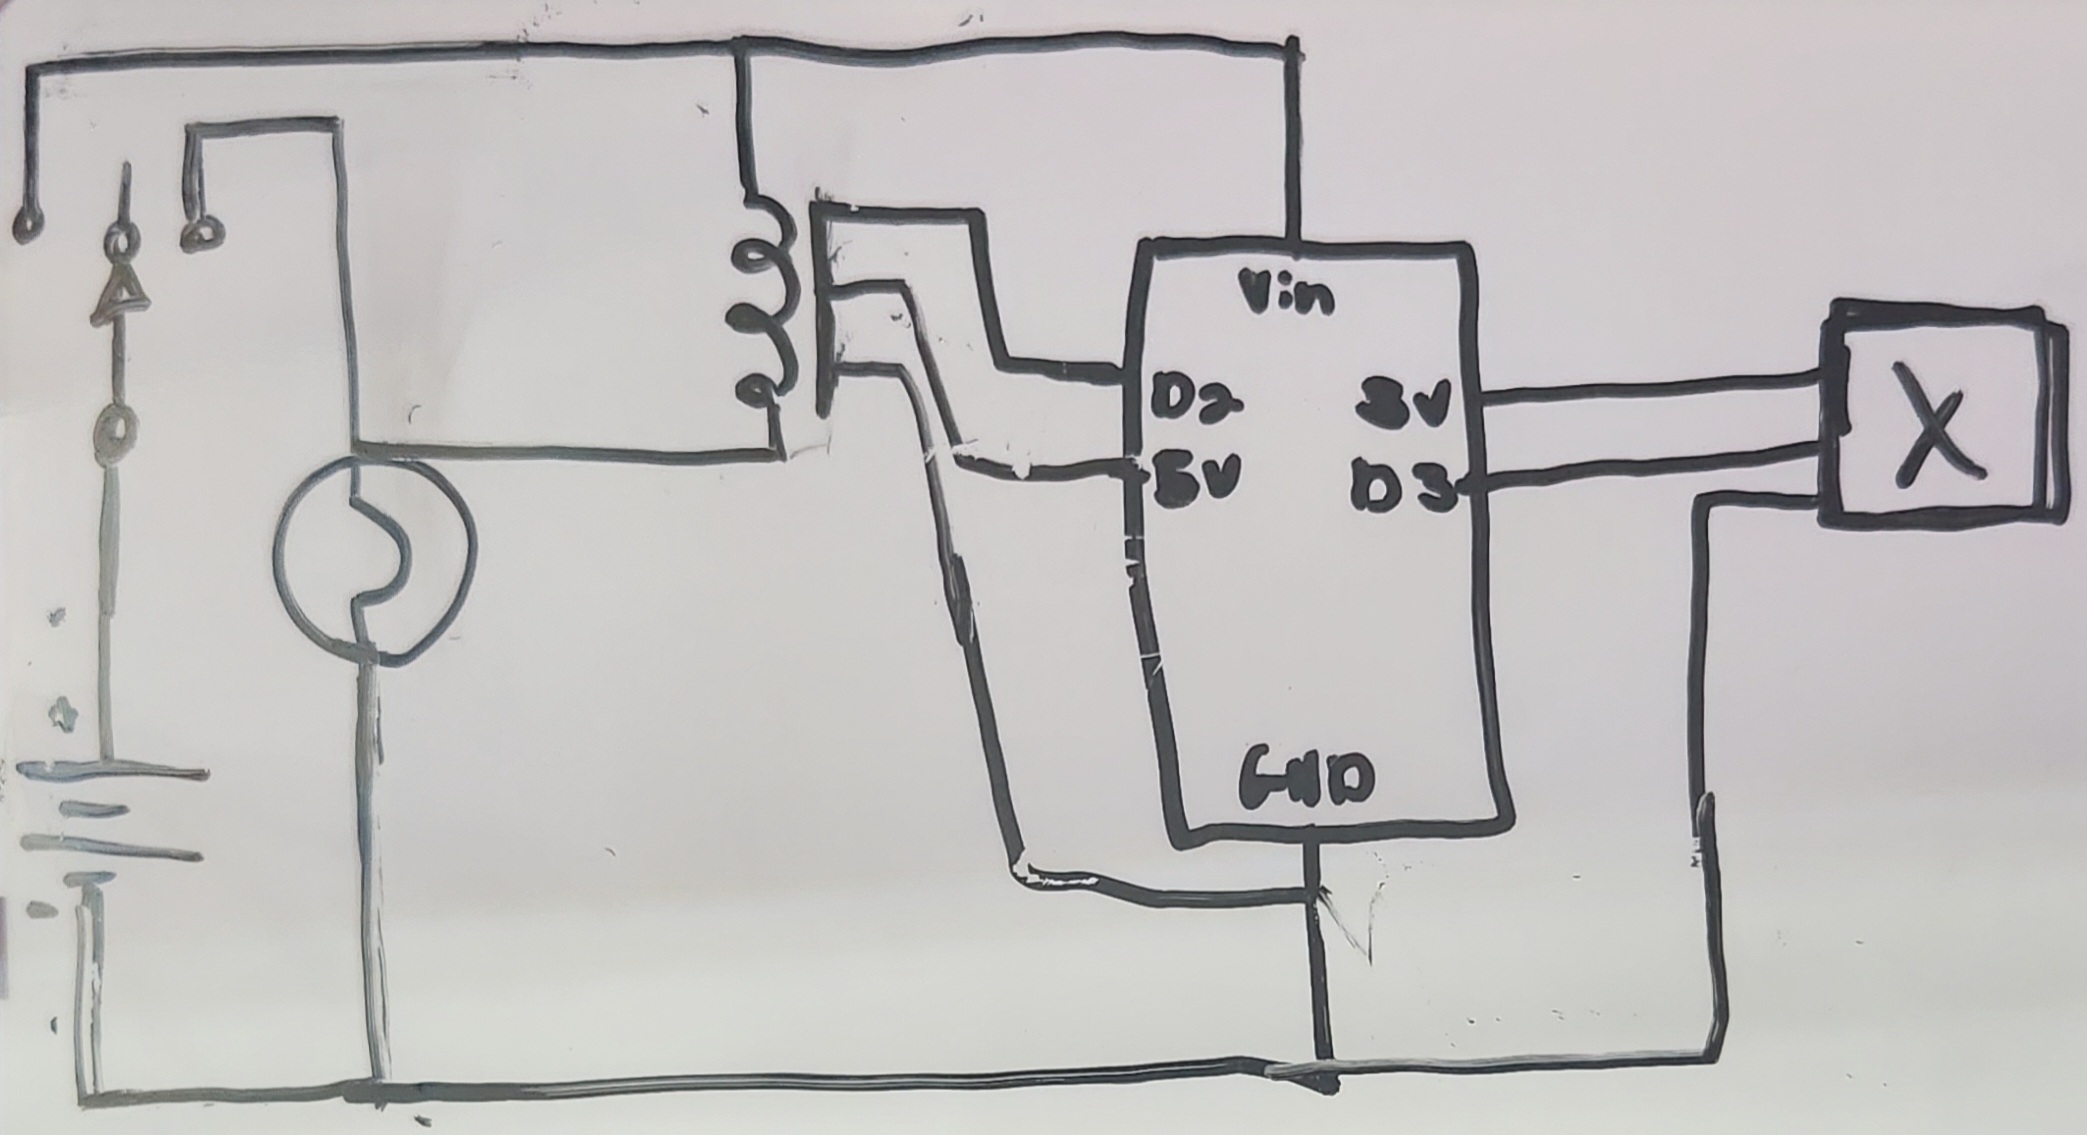 Vin
D2 3V
5V D3
GND
X